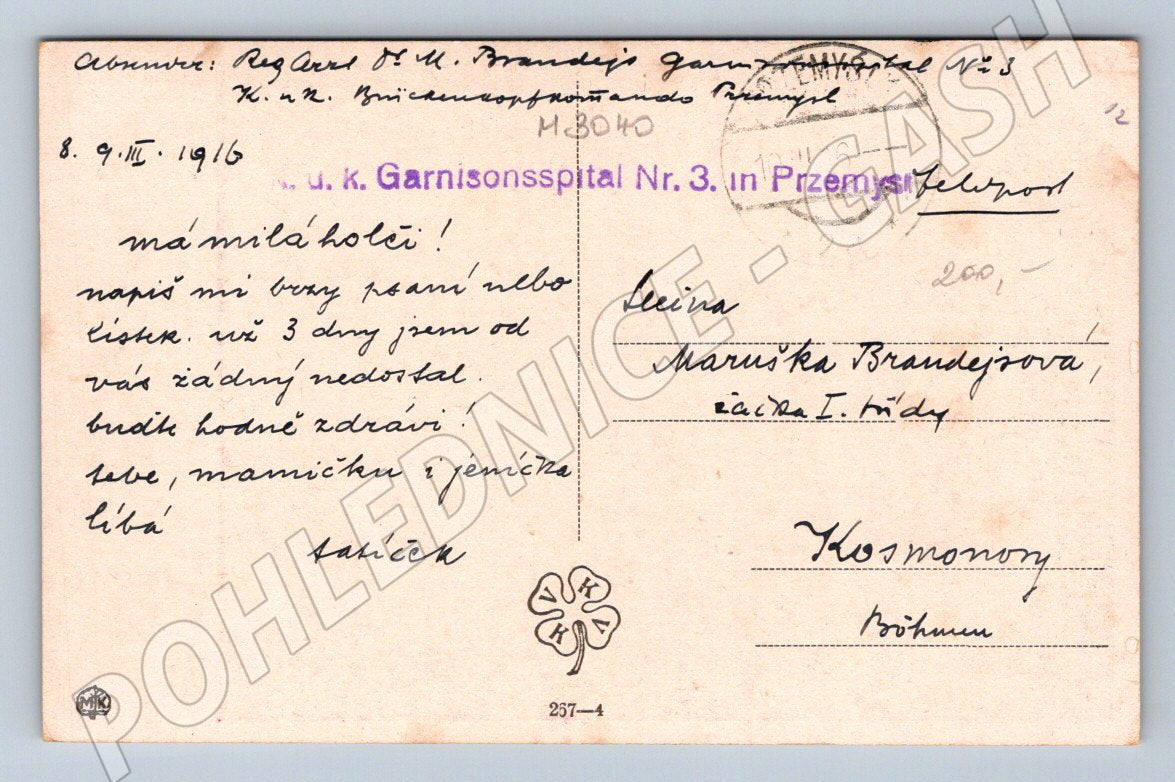 Absender: Reg Arzt Dr M. Brandejs Garnisonsspital Nr 3
K. u K. Brückenkopfkom̄ando Przemysl
M 3040
12
8. 9. III. 1916
PRZEMYŚL
u. k. Garnisonsspital Nr. 3. in Przemysl
Feldpost
má milá holči!
napiš mi brzy psaní nebo
lístek. už 3 dny jsem od
vás žádný nedostal.
buďte hodně zdrávi!
tebe, mamičku i jeníčka
líbá
tatíček
200,-
Slečna
Maruška Brandejsová,
žačka I. třídy
Kosmonosy
Böhmen
V K
K V
MK
267—4
POHLEDNICE - GASH